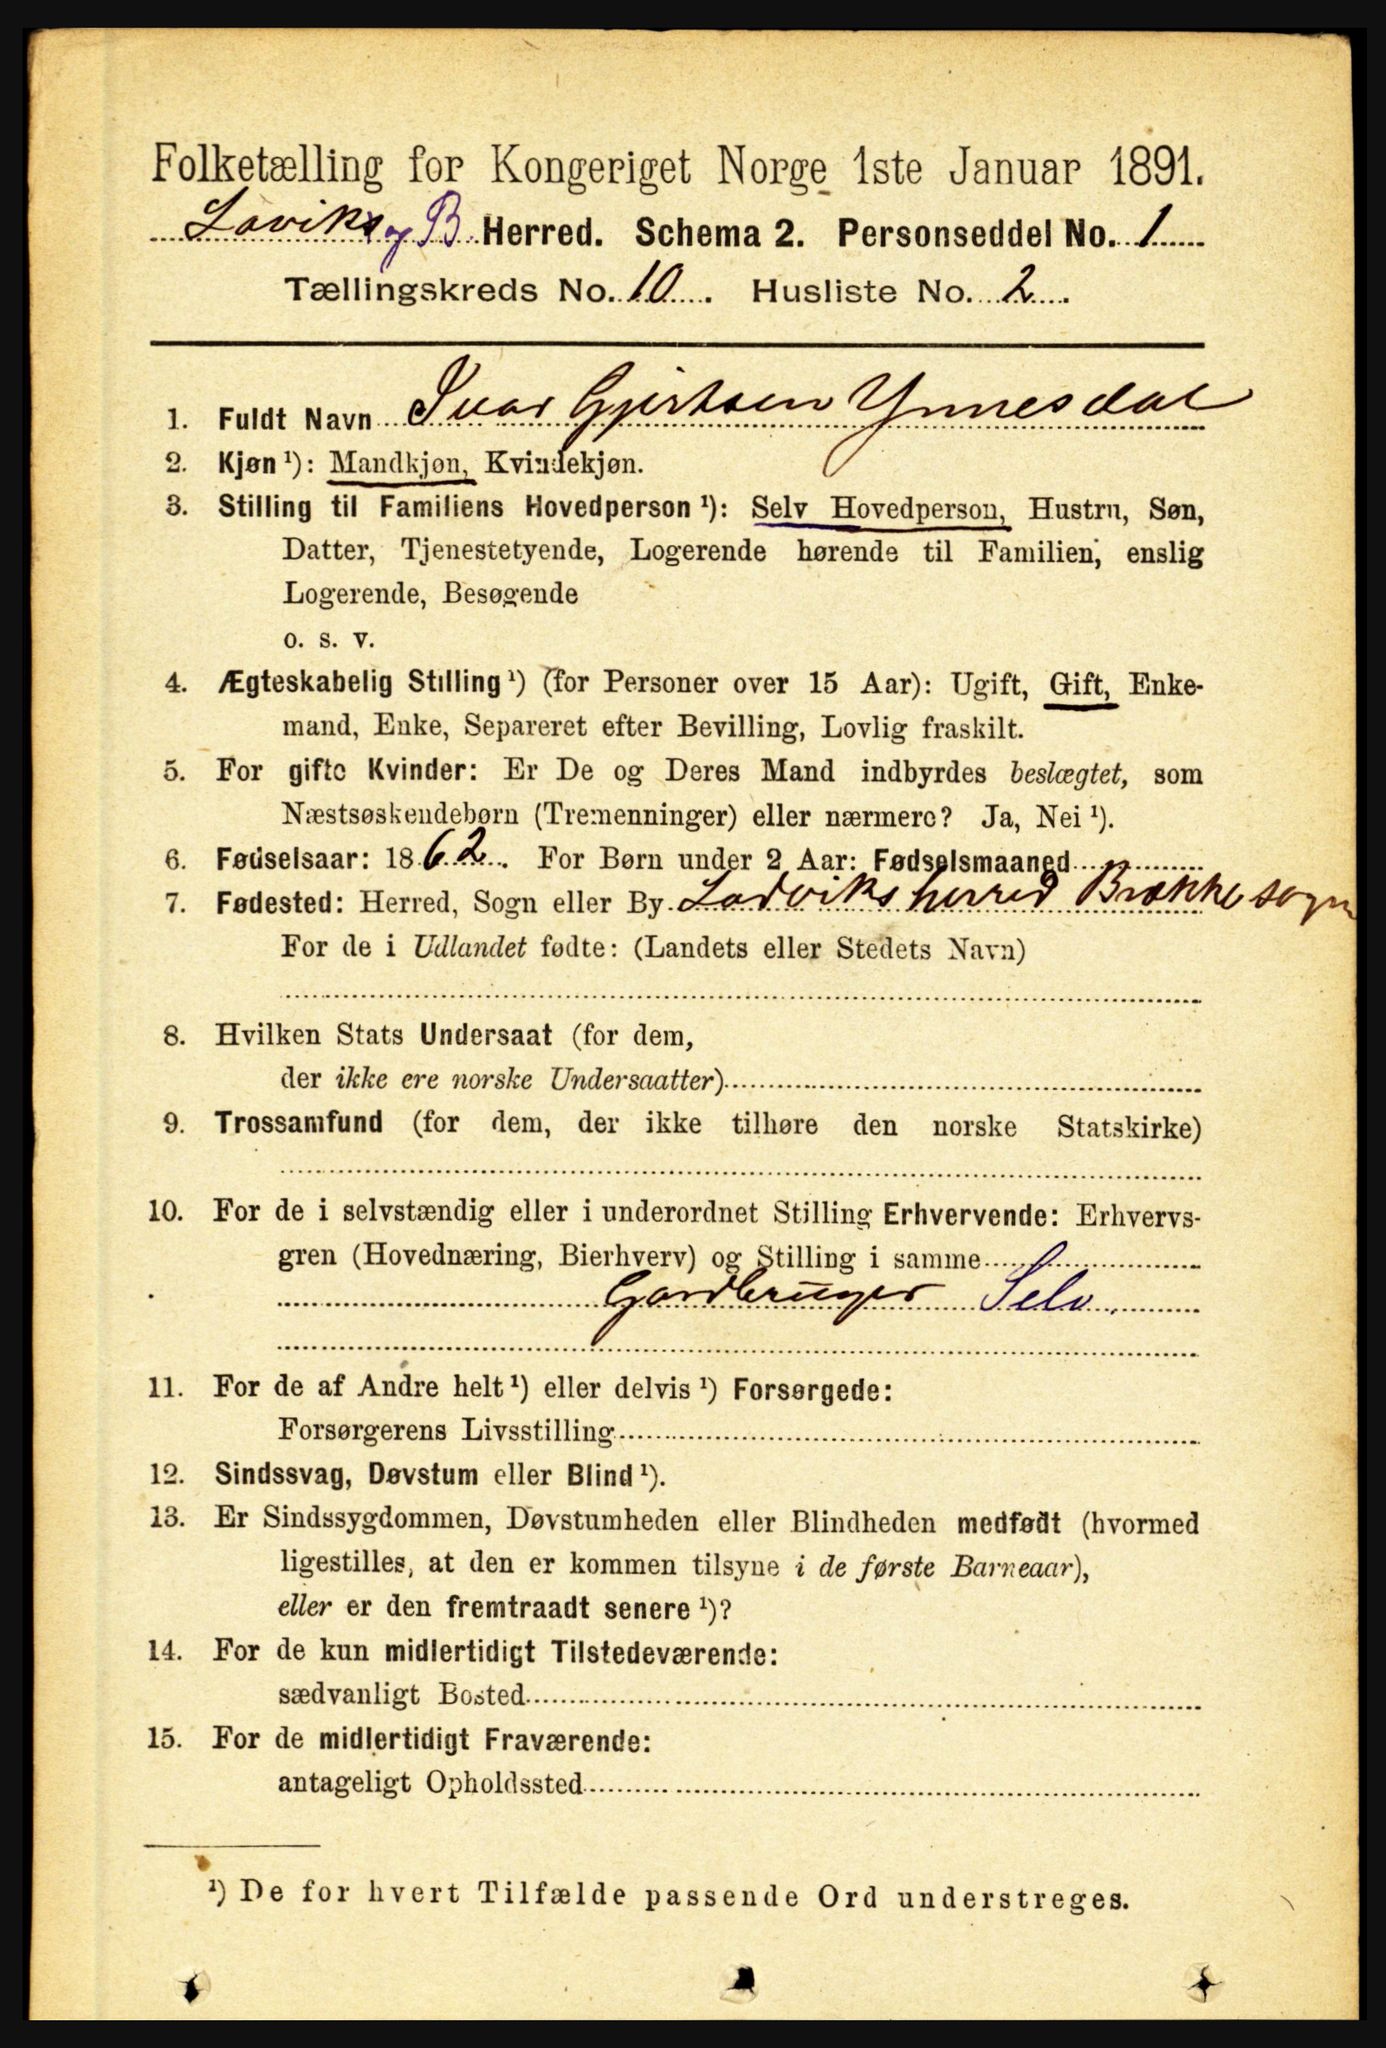 Folketælling for Kongeriget Norge 1ste Januar 1891.
Laviks og B. Herred. Schema 2. Personseddel No. 1
Tællingskreds No. 10. Husliste No. 2.
1. Fuldt Navn Ivar Gjertsen Ynnesdal
2. Kjøn ¹): Mandkjøn, Kvindekjøn.
3. Stilling til Familiens Hovedperson ¹): Selv Hovedperson, Hustru, Søn,
Datter, Tjenestetyende, Logerende hørende til Familien, enslig
Logerende, Besøgende
o. s. v.
4. Ægteskabelig Stilling ¹) (for Personer over 15 Aar): Ugift, Gift, Enke-
mand, Enke, Separeret efter Bevilling, Lovlig fraskilt.
5. For gifte Kvinder: Er De og Deres Mand indbyrdes beslægtet, som
Næstsøskendebørn (Tremenninger) eller nærmere? Ja, Nei ¹).
6. Fødselsaar: 1862. For Børn under 2 Aar: Fødselsmaaned
7. Fødested: Herred, Sogn eller By Ladviks herred Brække sogn
For de i Udlandet fødte: (Landets eller Stedets Navn)
8. Hvilken Stats Undersaat (for dem,
der ikke ere norske Undersaatter)
9. Trossamfund (for dem, der ikke tilhøre den norske Statskirke)
10. For de i selvstændig eller i underordnet Stilling Erhvervende: Erhvervs-
gren (Hovednæring, Bierhverv) og Stilling i samme
Gardbruger Selv.
11. For de af Andre helt ¹) eller delvis ¹) Forsørgede:
Forsørgerens Livsstilling
12. Sindssvag, Døvstum eller Blind ¹).
13. Er Sindssygdommen, Døvstumheden eller Blindheden medfødt (hvormed
ligestilles, at den er kommen tilsyne i de første Barneaar),
eller er den fremtraadt senere ¹)?
14. For de kun midlertidigt Tilstedeværende:
sædvanligt Bosted
15. For de midlertidigt Fraværende:
antageligt Opholdssted
¹) De for hvert Tilfælde passende Ord understreges.